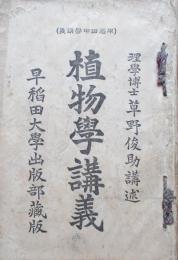 理學博士 草野俊助講述
植物學講義
早稻田大學出版部藏版